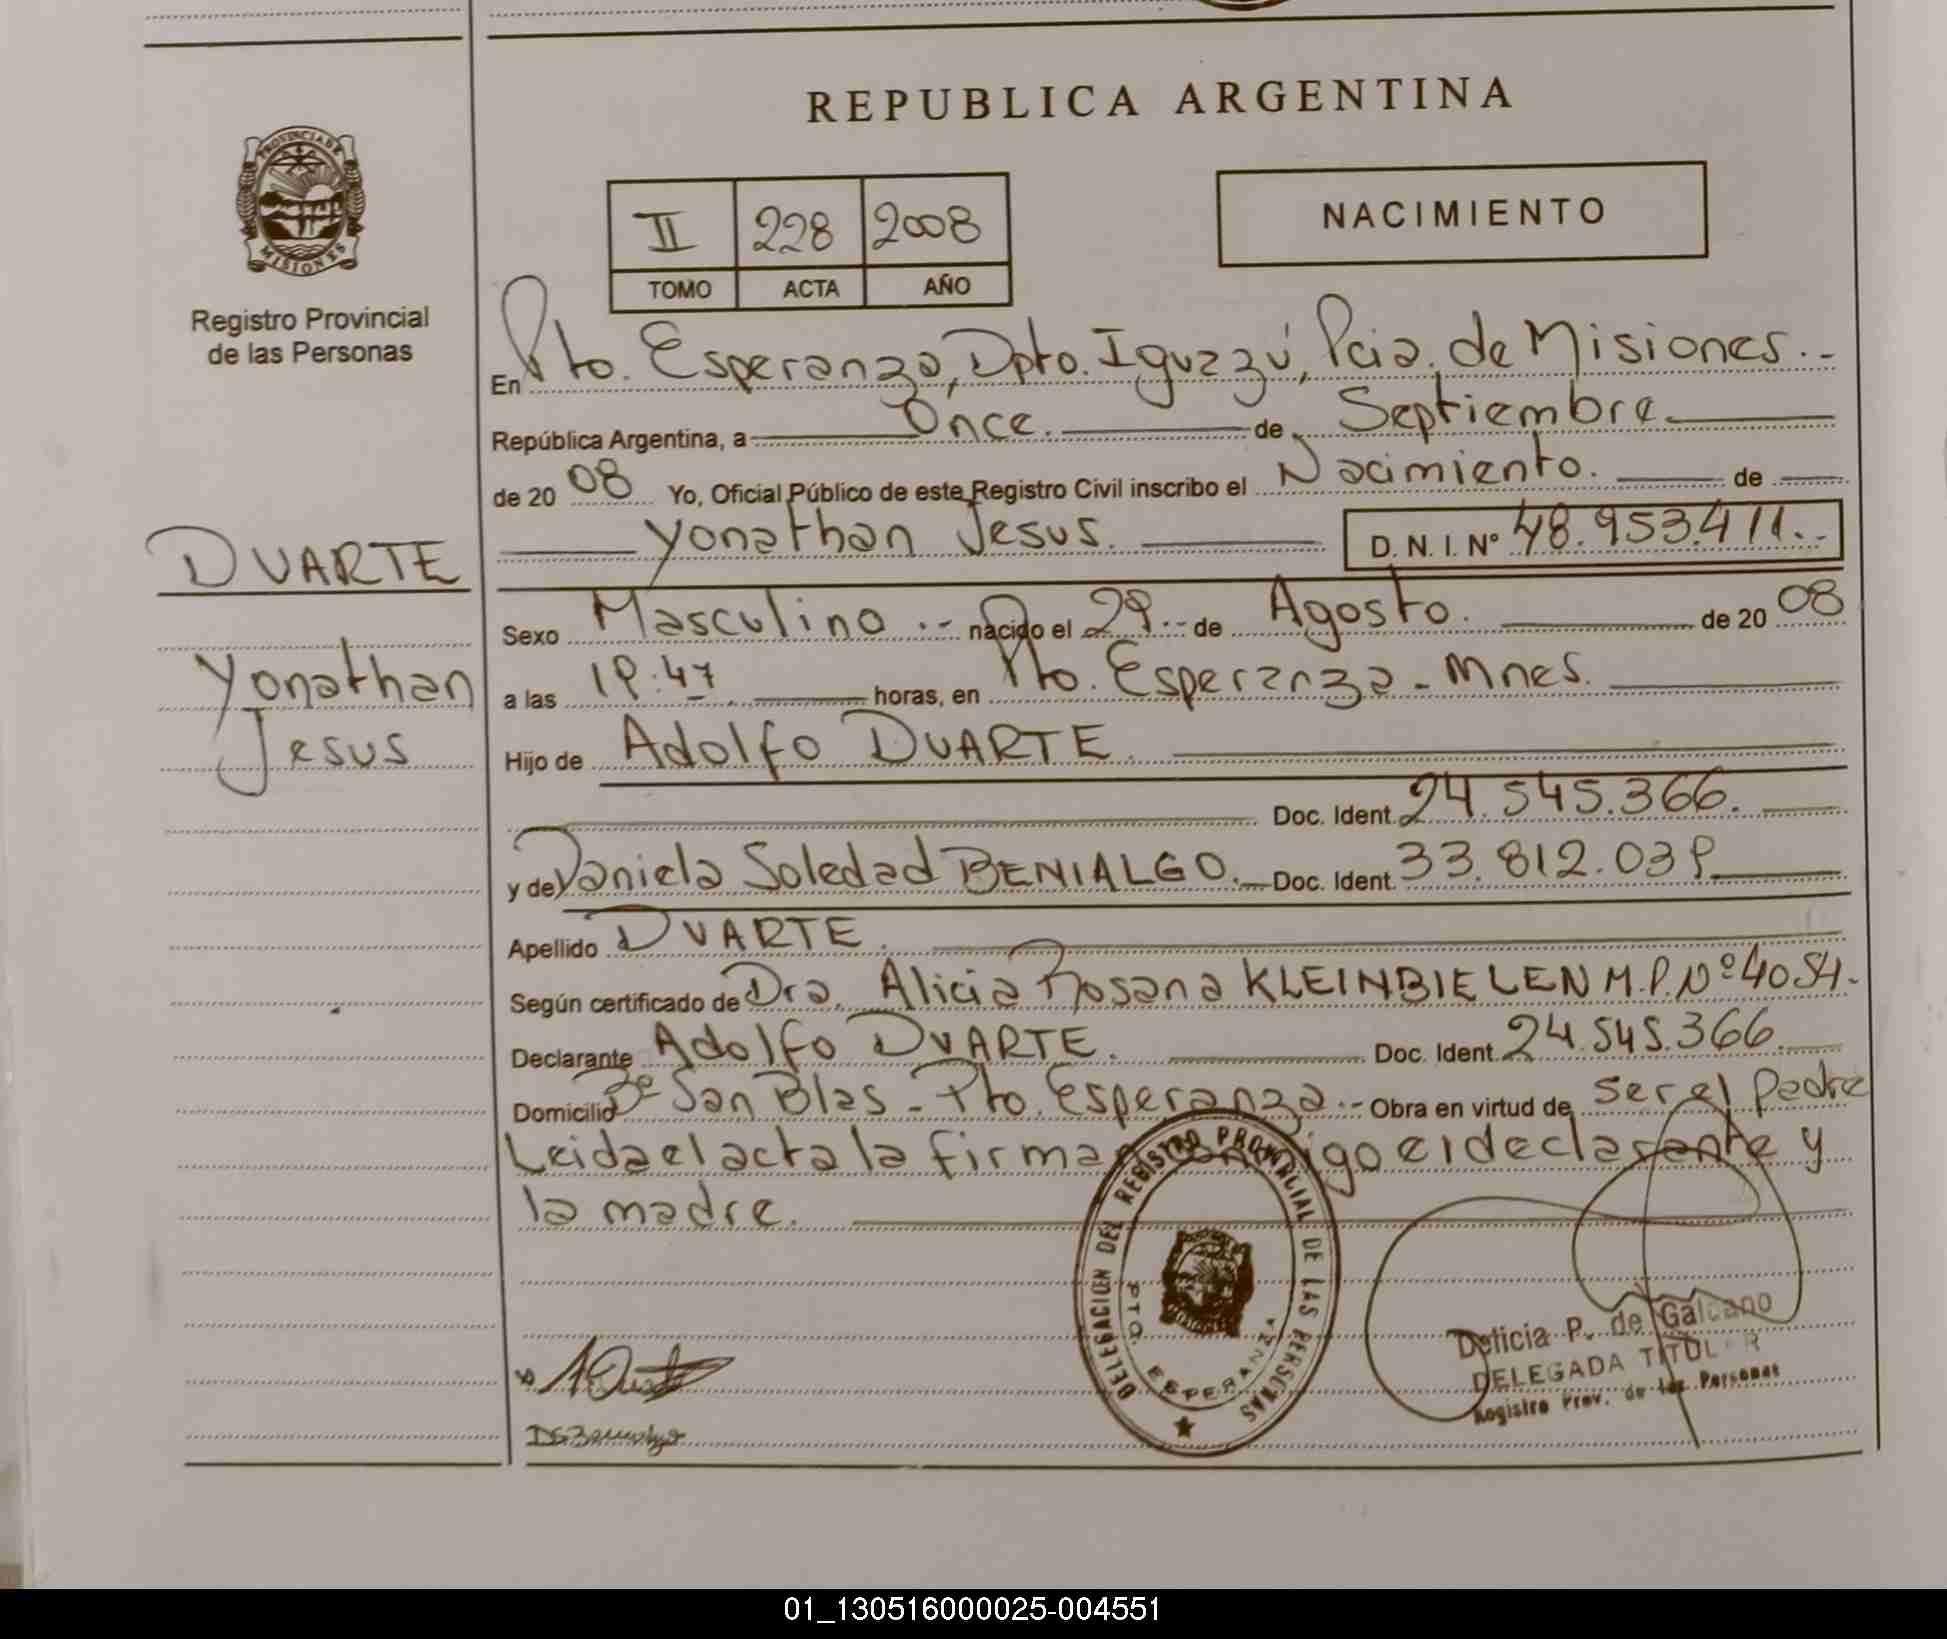 REPUBLICA ARGENTINA
PROVINCIA DE
MISIONES
Registro Provincial
de las Personas
II 228 2008
TOMO ACTA AÑO
NACIMIENTO
En Pto. Esperanza, Dpto. Iguazú, Pcia. de Misiones.-
República Argentina, a Once. de Septiembre
de 20 08 Yo, Oficial Público de este Registro Civil inscribo el Nacimiento. de
Yonathan Jesus. D. N. I. Nº 48.953.411.-
DUARTE
Yonathan
Jesus
Sexo Masculino.- nacido el 29.- de Agosto. de 20 08
a las 19:47 horas, en Pto. Esperanza - Mnes.
Hijo de Adolfo DUARTE.
Doc. Ident. 24.545.366.
y de Daniela Soledad BENIALGO. Doc. Ident. 33.812.039
Apellido DUARTE.
Según certificado de Dra. Alicia Rosana KLEINBIELEN M.P. Nº 4054.
Declarante Adolfo DUARTE. Doc. Ident. 24.545.366.
Domicilio Bº San Blas - Pto. Esperanza.- Obra en virtud de ser el padre
Leida el acta la firma el declarante y
la madre.
DELEGACION DEL REGISTRO PROVINCIAL DE LAS PERSONAS
PTO. ESPERANZA
Delicia P. de Galeano
DELEGADA TITULAR
Registro Prov. de las Personas
01_130516000025-004551